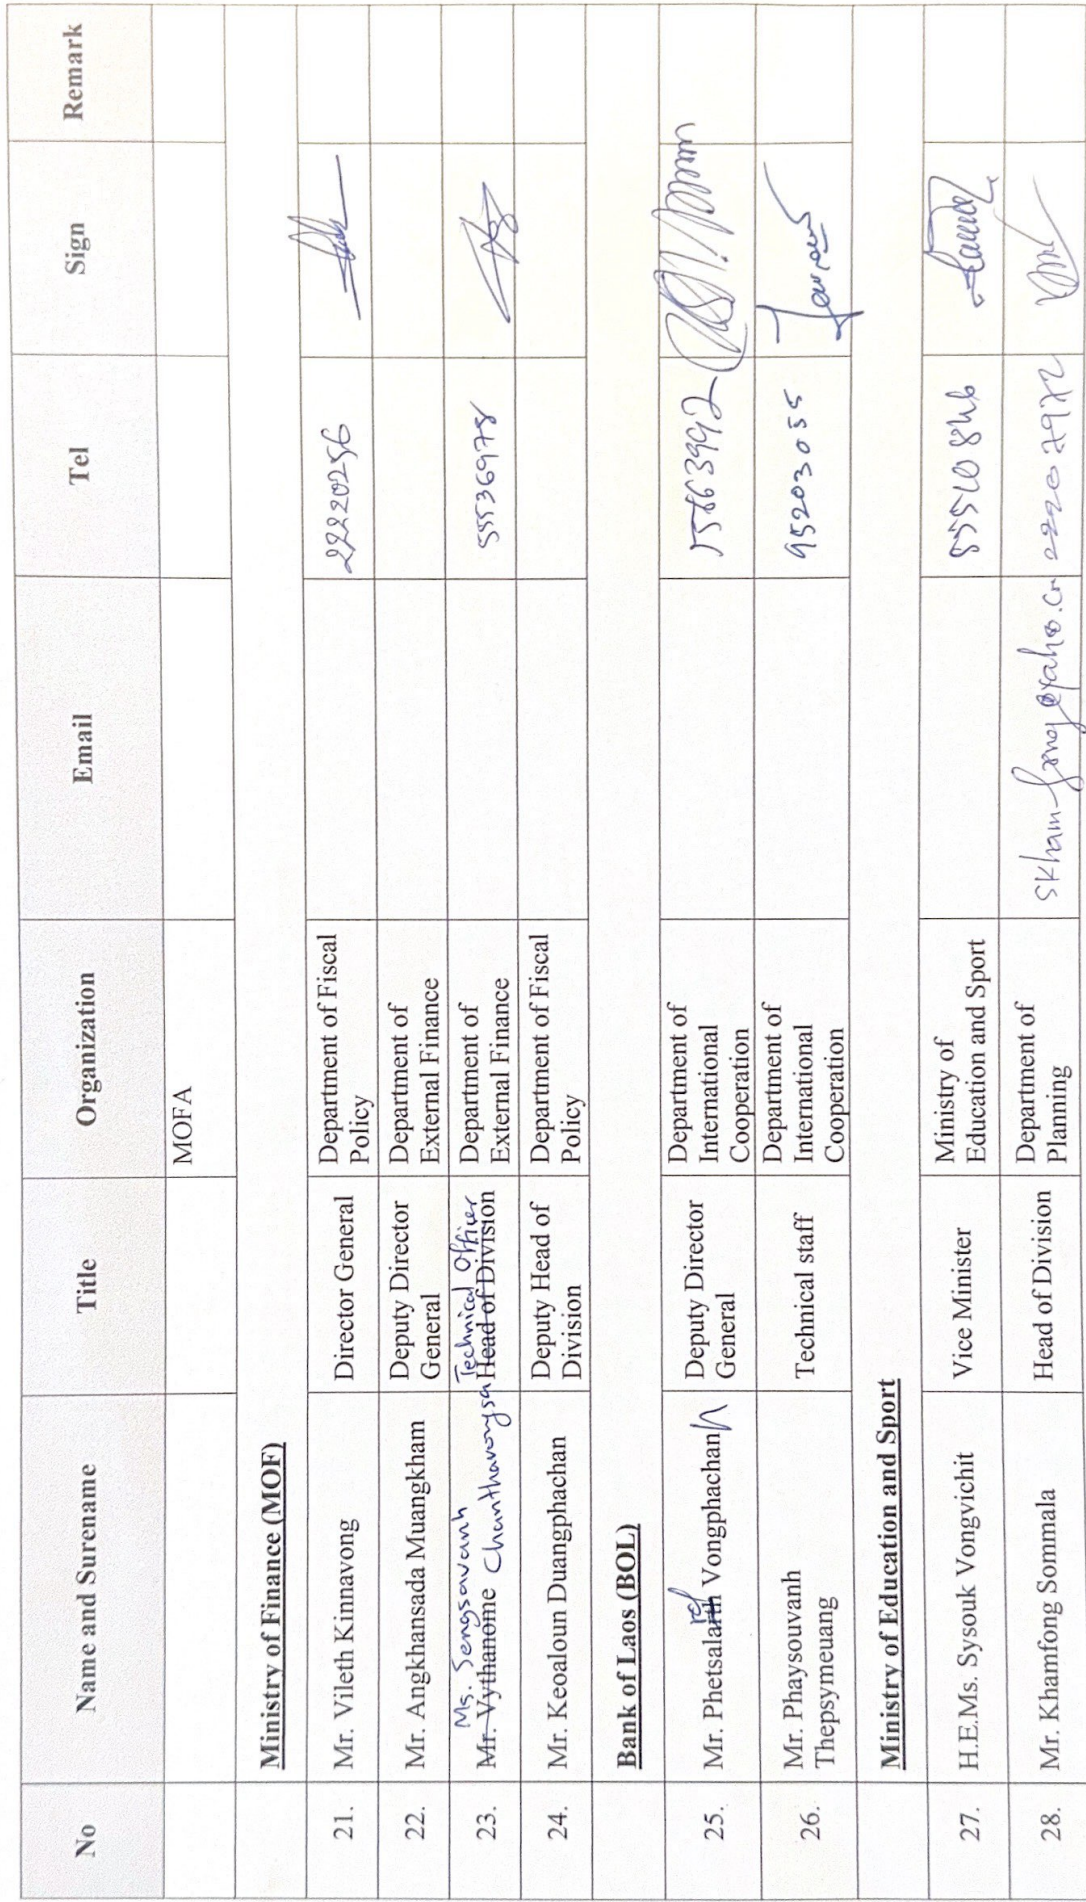 No Name and Surename Title Organization Email Tel Sign Remark
MOFA
Ministry of Finance (MOF)
21. Mr. Vileth Kinnavong Director General Department of Fiscal
Policy 22220256
22. Mr. Angkhansada Muangkham Deputy Director
General Department of
External Finance
Ms. Sengsavanh Technical Officer
23. Mr. Vythanone Chanthavongsa Head of Division Department of
External Finance 55536978
24. Mr. Keoaloun Duangphachan Deputy Head of
Division Department of Fiscal
Policy
Bank of Laos (BOL)
25. Mr. Phetsalarth Vongphachanh Deputy Director
General Department of
International
Cooperation
26. Mr. Phaysouvanh
Thepsymeuang Technical staff Department of
International
Cooperation 95203055
Ministry of Education and Sport
27. H.E.Ms. Sysouk Vongvichit Vice Minister Ministry of
Education and Sport
28. Mr. Khamfong Sommala Head of Division Department of
Planning